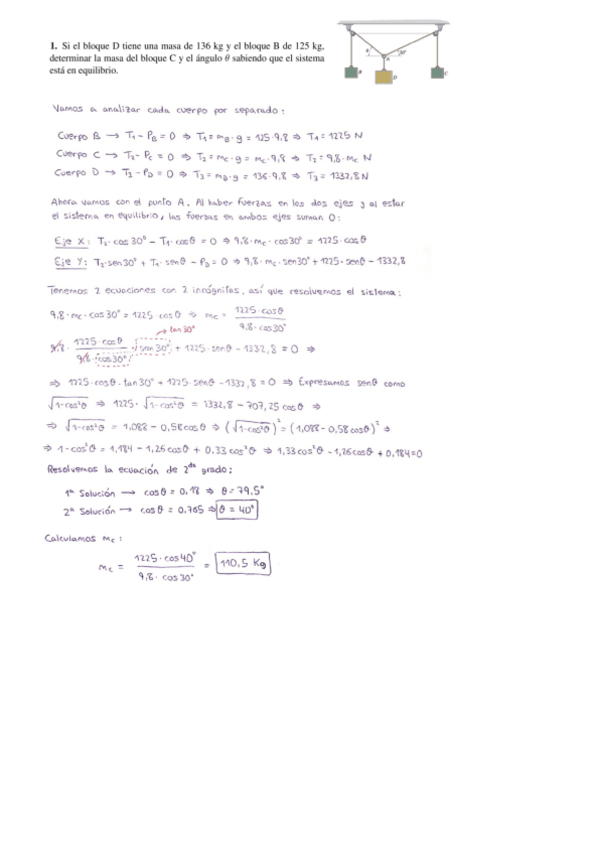 1. Si el bloque D tiene una masa de 136 kg y el bloque B de 125 kg,
determinar la masa del bloque C y el ángulo θ sabiendo que el sistema
está en equilibrio.
Vamos a analizar cada cuerpo por separado:
Cuerpo B → T₁ - P_B = 0 ⇒ T₁ = m_B · g = 125 · 9,8 ⇒ T₁ = 1225 N
Cuerpo C → T₂ - P_C = 0 ⇒ T₂ = m_C · g = m_C · 9,8 ⇒ T₂ = 9,8 · m_C N
Cuerpo D → T₃ - P_D = 0 ⇒ T₃ = m_D · g = 136 · 9,8 ⇒ T₃ = 1332,8 N
Ahora vamos con el punto A. Al haber fuerzas en los dos ejes y al estar
el sistema en equilibrio, las fuerzas en ambos ejes suman 0:
Eje X: T₂ · cos 30° - T₁ · cos θ = 0 ⇒ 9,8 · m_C · cos 30° = 1225 · cos θ
Eje Y: T₂ · sen 30° + T₁ · sen θ - P_D = 0 ⇒ 9,8 · m_C · sen 30° + 1225 · sen θ - 1332,8
Tenemos 2 ecuaciones con 2 incógnitas, así que resolvemos el sistema:
9,8 · m_C · cos 30° = 1225 · cos θ ⇒ m_C = 1225 · cos θ / 9,8 · cos 30°
→ tan 30°
9,8 · 1225 · cos θ / 9,8 · cos 30° · sen 30° + 1225 · sen θ - 1332,8 = 0 ⇒
⇒ 1225 · cos θ · tan 30° + 1225 · sen θ - 1332,8 = 0 ⇒ Expresamos sen θ como
√1-cos²θ ⇒ 1225 · √1-cos²θ = 1332,8 - 707,25 cos θ ⇒
⇒ √1-cos²θ = 1,088 - 0,58 cos θ ⇒ (√1-cos²θ)² = (1,088 - 0,58 cos θ)² ⇒
⇒ 1 - cos²θ = 1,184 - 1,26 cos θ + 0,33 cos²θ ⇒ 1,33 cos²θ - 1,26 cos θ + 0,184 = 0
Resolvemos la ecuación de 2do grado:
1ª Solución → cos θ = 0,18 ⇒ θ = 79,5°
2ª Solución → cos θ = 0,765 ⇒ θ = 40°
Calculamos m_C:
m_C = 1225 · cos 40° / 9,8 · cos 30° = 110,5 Kg